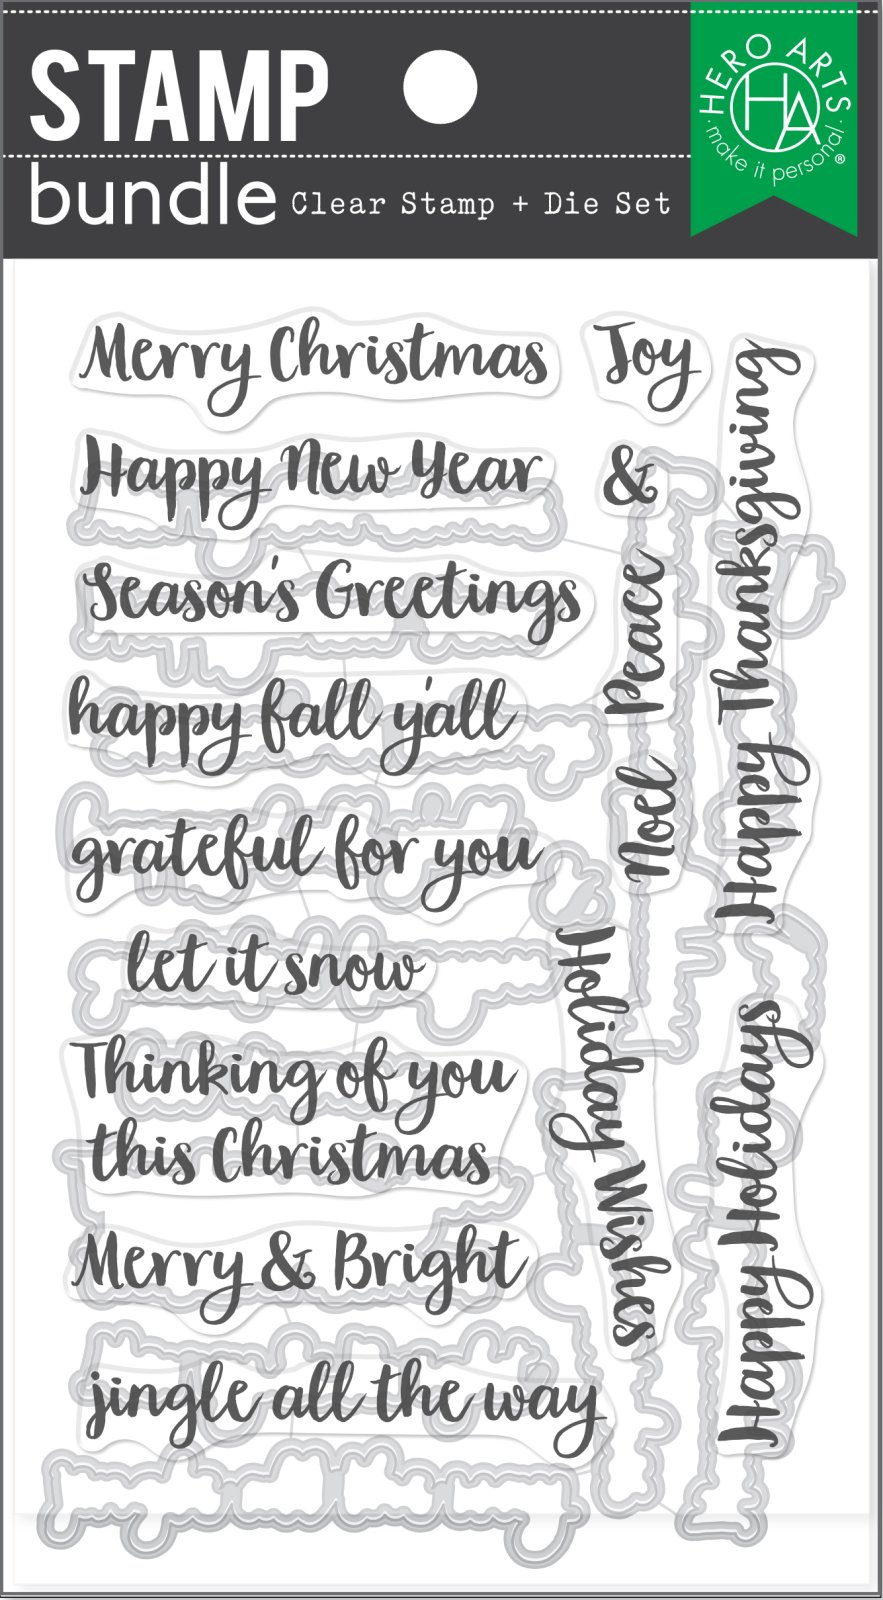 STAMP
bundle Clear Stamp + Die Set
HERO ARTS
HA
· make it personal ·®
Merry Christmas
Happy New Year
Season's Greetings
happy fall y'all
grateful for you
let it snow
Thinking of you
this Christmas
Merry & Bright
jingle all the way
Joy
&
Peace
Noel
Holiday Wishes
Happy Thanksgiving
Happy Holidays